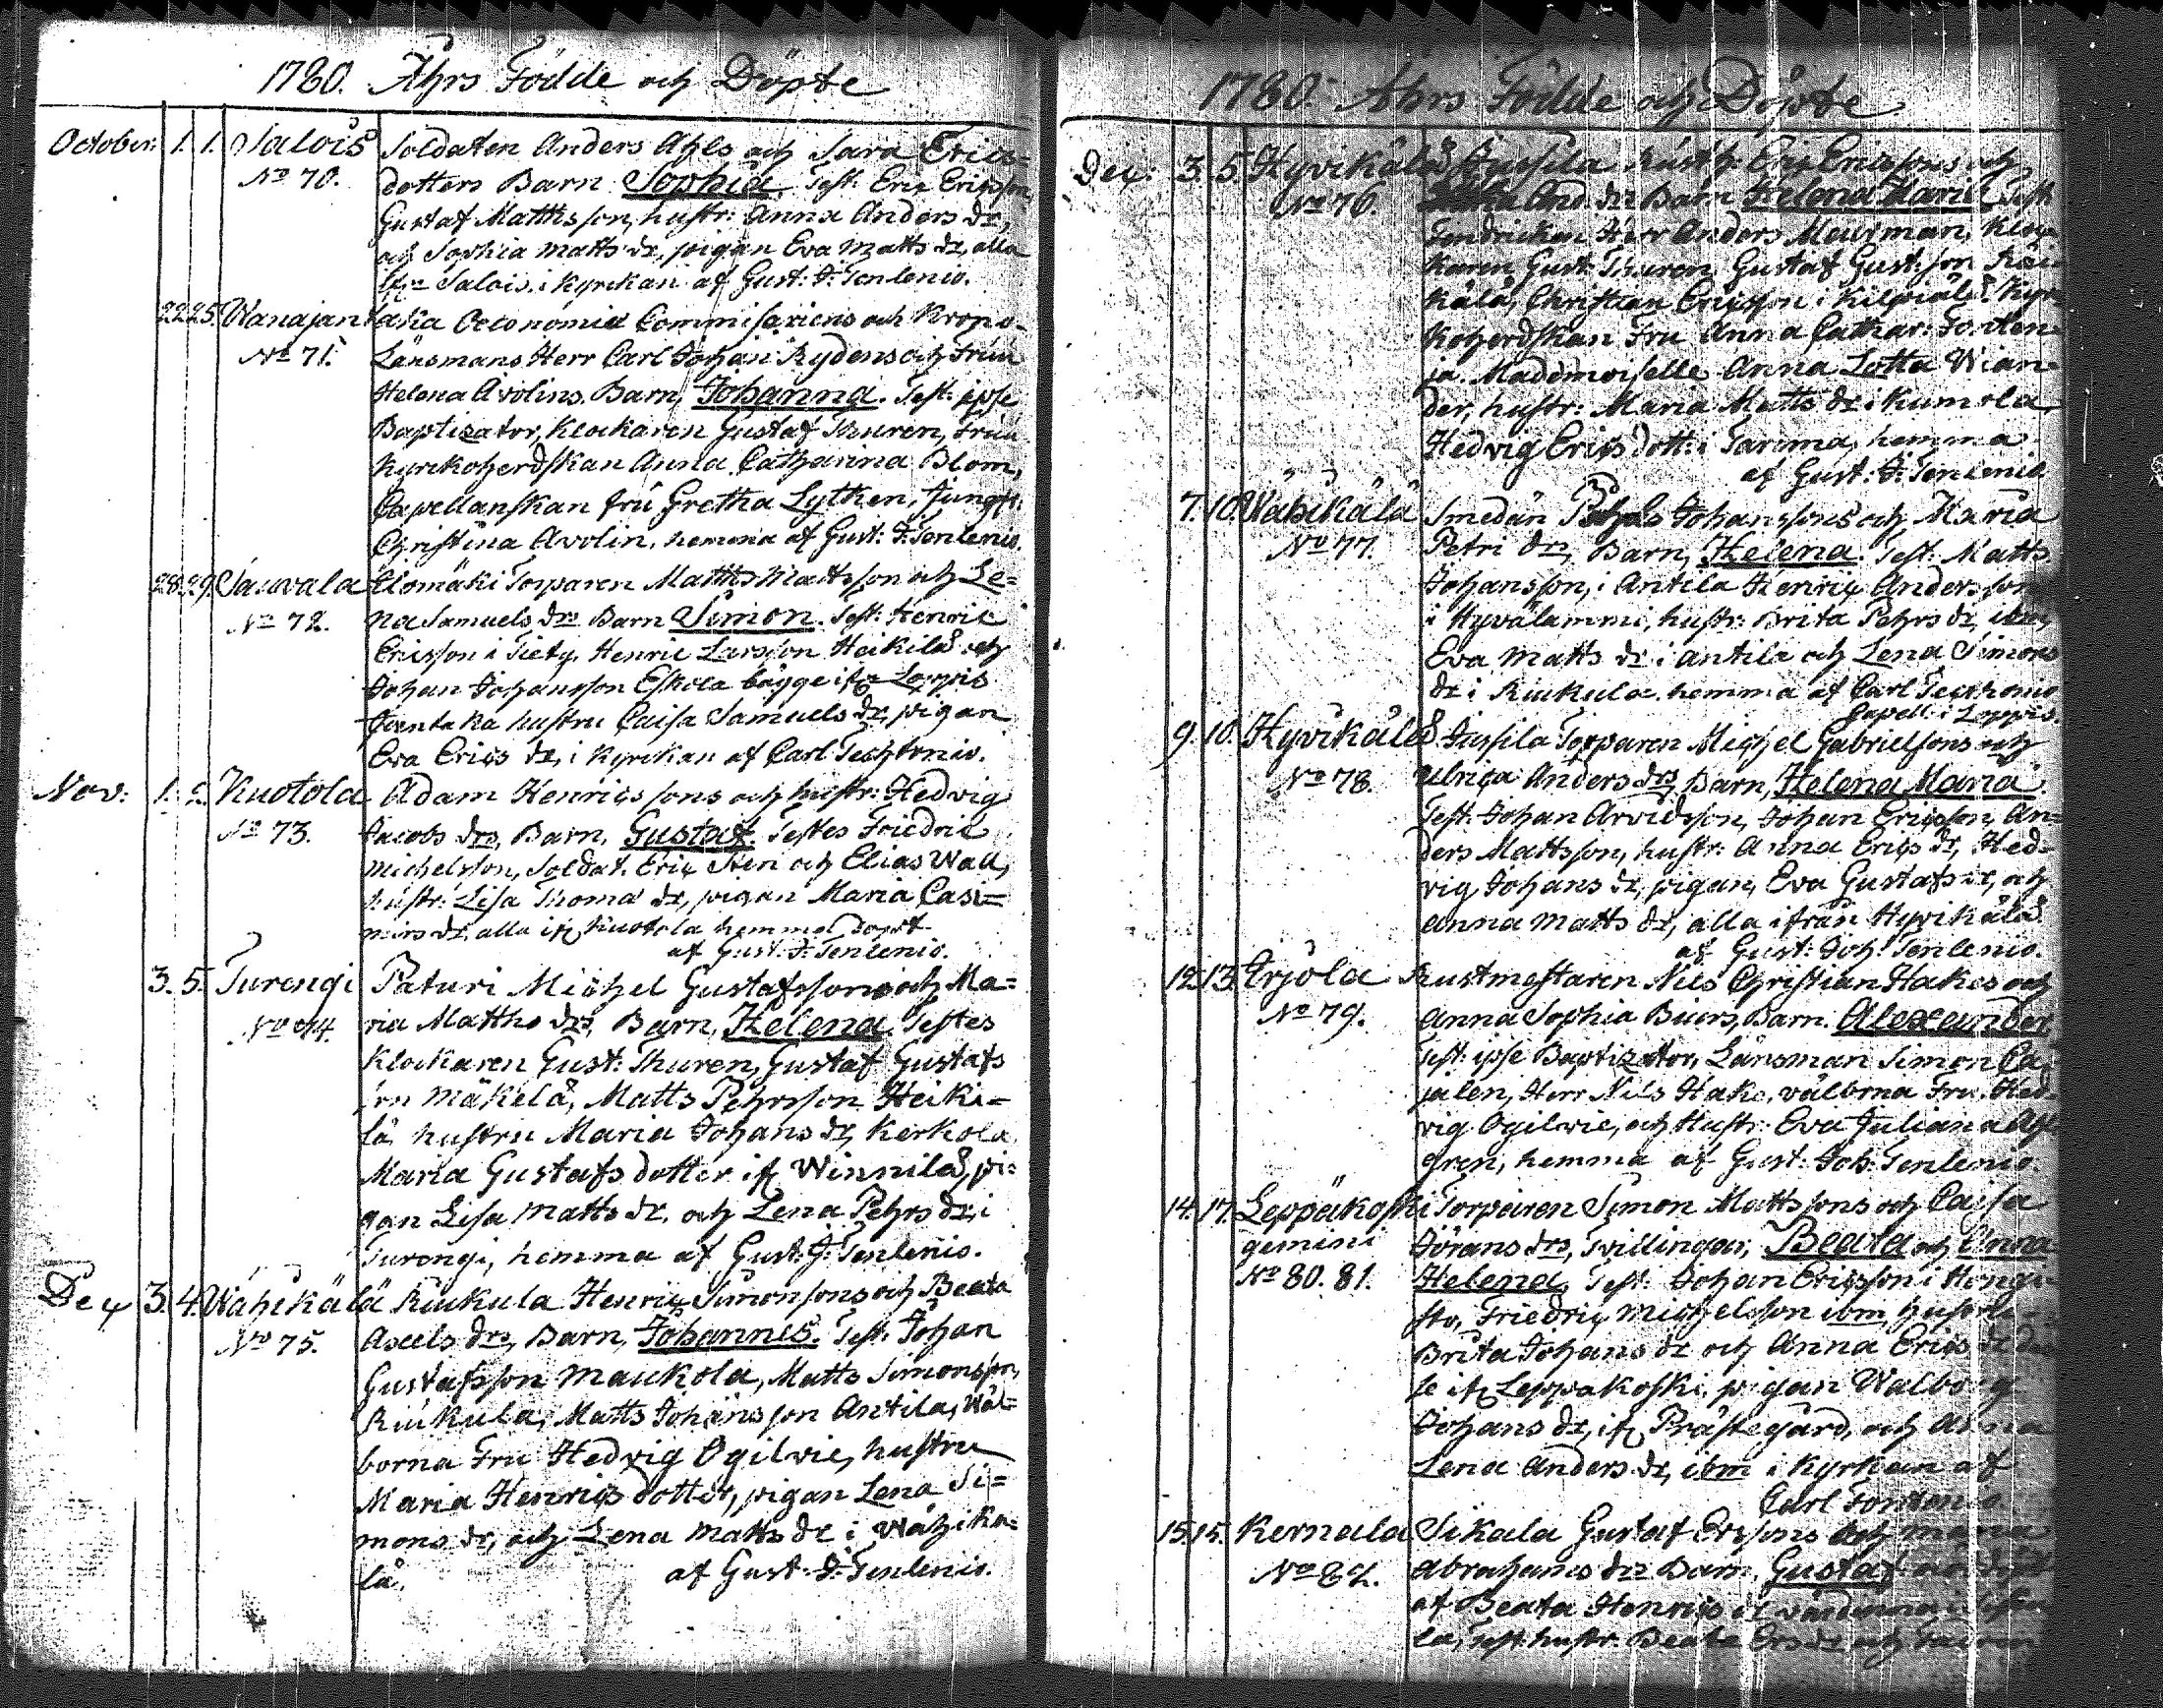 1780. Åhrs Födde och Döpte
October: 1. 1. Salois Soldaten Anders Ahls och Sara Erics=
No 70. dotters Barn Sophia. Test: Eric Ericsson,
Gustaf Matthsson, hustr: Anna Anders dr,
och Sophia Matts dr, pigan Eva Matts dr, alla
ifrn Salois. i Kyrckan af Gust: J: Tenlenio.
22. 25. Wanajantaka Oeconomiæ Commissariens och Krono-
No 71. Länsmans Herr Carl Johan Rydens och Fruu
Helena Avolins Barn, Johanna. Test: ipse
Baptizator, Klockaren Gustaf Thuren, Fruu
Kyrckoherdskan Anna Catharina Blom,
Capellanskan fru Gretha Lythen, Jungfr:
Christina Avolin, hemma af Gust: J: Tenlenio.
28. 29. Sauvala Elomäki Torparen Matths Mattsson och Le=
No 72. na Samuels drs Barn Simon. Test: Henric
Ericsson i Tiety, Henric Larsson Heikilä och
Johan Johansson Eskola bägge ifrn Loppis
hustru Caisa Samuels dr, pigan
Eva Erics dr, i Kyrckan af Carl
Nov: 1. 2. Kuotola Adam Henrics sons och hustr: Hedvig
No 73. Jacobs drs, Barn, Gustaf. Testes Friedric
Michelsson, Soldat. Eric Sten och Elias Wall,
hustr: Lisa Thomæ dr, pigan Maria Casi=
mirs dr, alla ifn Kuotola hemma döpt
af Gust: J: Tenlenio.
3. 5. Turengi Paturi Michel Gustafssons och Ma=
No 74. ria Matths drs, Barn, Helena. Testes
Klockaren Gust: Thuren, Gustaf Gustafs
son Mäkelä, Matts Pehrsson Heiki=
lä, hustru Maria Johans dr, Kerkola
Maria Gustafs dotter ifn Winnilä, pi=
gan Lisa Matts dr, och Lena Pehrs dr, i
Turengi, hemma af Gust: J: Tenlenio.
Dec 3. 4. Wähikälä Riukula Henric Simonsons och Beata
No 75. Axels drs, Barn, Johannes. Test. Johan
Gustafsson Maukola, Matts Simonsson,
Riukula, Matts Johansson Antila, Wäl=
borna Fru Hedvig Ogilvie, hustru
Maria Henrics dotter, pigan Lena Si=
mons dr, och Lena Matts dr i Wähikä=
lä. af Gust: J: Tenlenio.
1780. Åhrs Födde och Döpte
Dec: 3. 5. Hyvikälä Jussila Eric Ericssons och
No 76. And. drs Barn Helena Maria Test
Fendricken Herr Anders Meurman, Kloc
karen Gust: Thuren, Gustaf Gust: son Räi
kälä, Christian Ericsson i Kilpiälä. Kyr
koherdskan Fru Anna Cathar: Fonten
ja. Mademoiselle Anna Lotta Wian=
der, hustr: Maria Matts dr i Kumola
Hedvig Erics dott: i Tarima, hemma
af Gust: J: Tenlenio
7. 10. Wähikälä Smeden Johanssons och Maria
No 77. Petri drs, Barn, Helena. Test. Matts
Johansson, i Antila Henric Andersson
i Hyvälammi, hustr: Brita Pehrs dr, ibm,
Eva Matts dr i Antila och Lena Simons
dr i Riukula. hemma af Carl
Capell: i Loppis.
9. 10. Hyvikälä Jussila Torparen Michel Gabrielsons och
No 78. Ulrica Anders drs, Barn, Helena Maria.
Test. Johan Arvidsson, Johan Ericsson, An=
ders Mattsson, hustr: Anna Erics dr, Hed=
vig Johans dr, pigan, Eva Gustafs dr, och
Anna Matts dr, alla ifrån Hyvikälä
af Gust: Joh: Tenlenio.
12. 13. Erjola Rustmestaren Nils Christian Hakes och
No 79. Anna Sophia Buurs, Barn. Alexander
Test: ipse Baptizator, Länsman Simon Ca
jalen, Herr Nils Hake, välborna Fru. Hed=
vig Ogilvie, och Hustr: Eva Juliana
gren, hemma af Gust: Joh: Tenlenio.
14. 17. Leppäkoski Torparen Simon Mattssons och Caisa
gemini Jörans drs, tvillingar, Beata och Anna
No 80. 81. Helena, Test: Johan Ericsson i Hongi
sto, Friedric Michelsson ibm
Brita Johans dr och Anna Erics dr
se ifn Leppäkoski, pigan Walborg
Johans dr, ifn Prästegård, och Anna
Lena Anders dr, ibm i Kyrkan af
Carl Fontenio
15. 15. Kernala Sikala Gustaf Ersons och Maria
No 82. Abrahams drs Barn, Gustaf
af Beata Henrics dr
la, Test: hustr. Beata Ers dr och